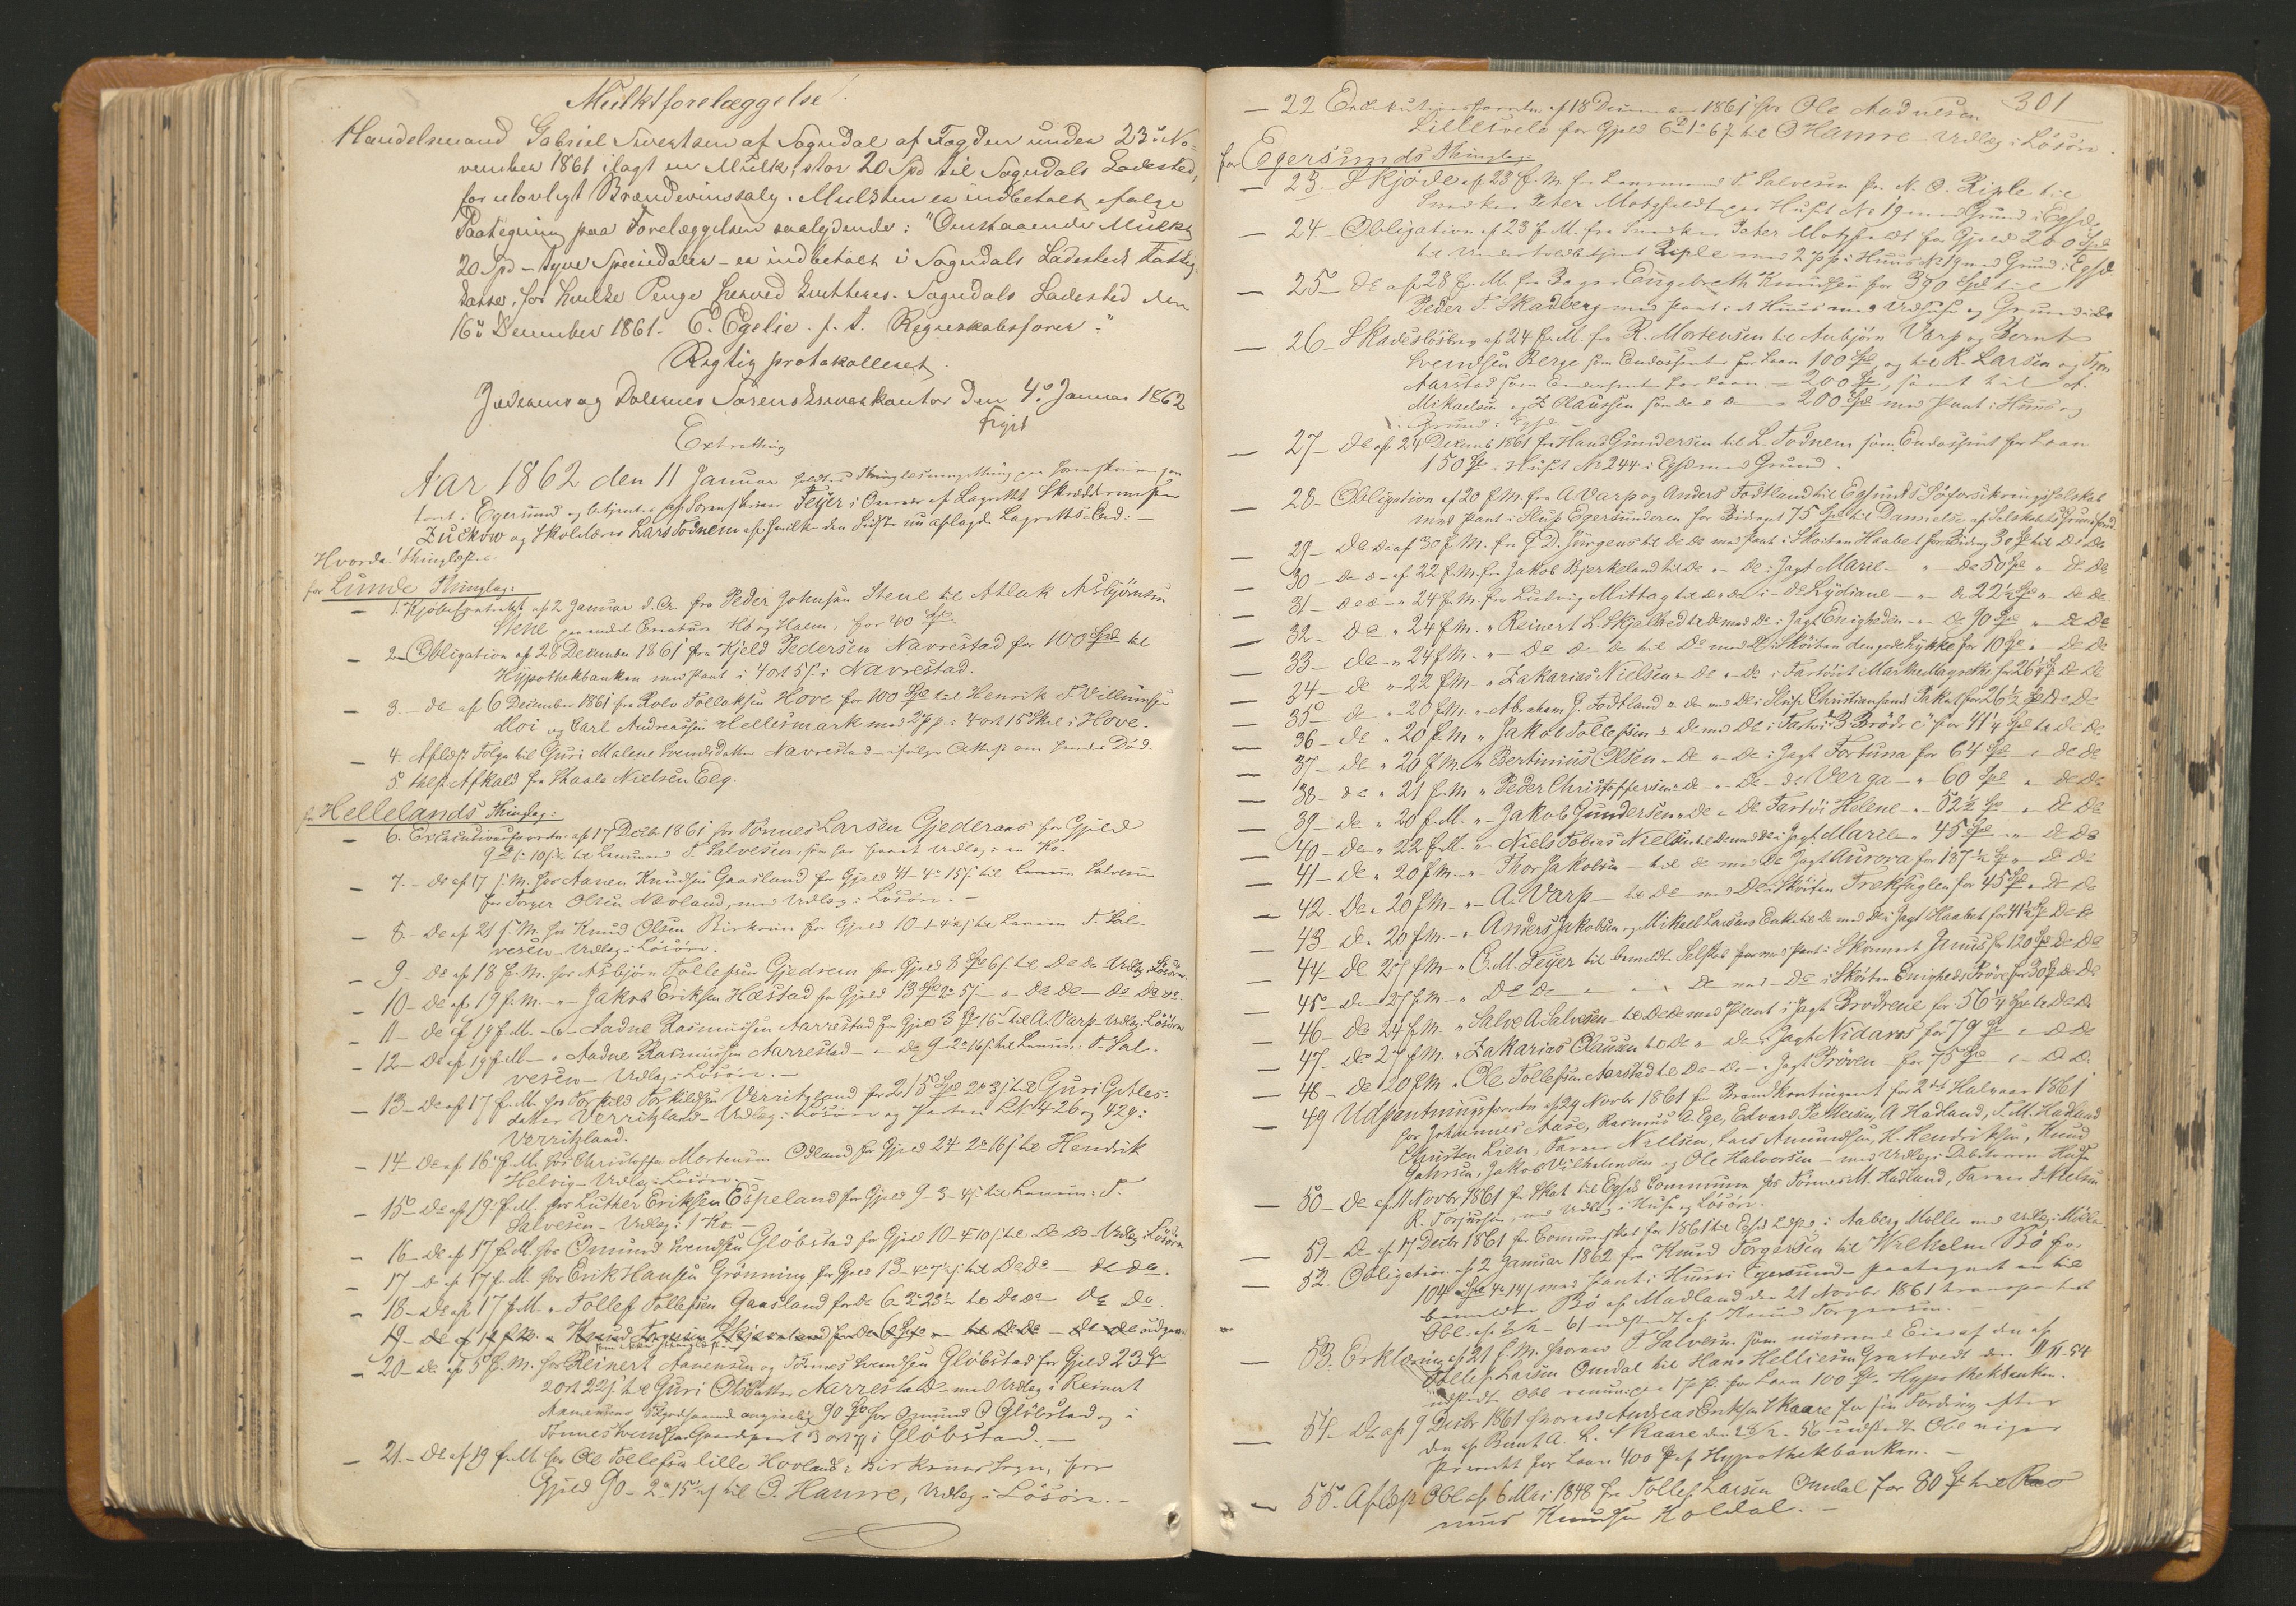 Mulktforelæggelse!
Handelsmand Gabriel Sivertsen af Sogndal af Fogden under 23de No-
vember 1861 ilagt en Mulkt, stor 20 Spd til Sogndals Ladested,
for ulovligt Brændeviinssalg. Mulkten er indbetalt ifølge
Paategning paa Forelæggelsen saalydende: "Omstaaende Mulkt
20 Spd - tyve Speciedaler - er indbetalt i Sogndals Ladesteds Fattig-
kasse, for hvilke Penge herved kvitteres. Sogndals Ladested den
16de December 1861. E. Egelie. f. t. Regnskabsfører."
Rigtig protokolleret
Jæderens og Dalernes Sorenskriverkontor den 4de Januar 1862
Feyer
Extrathing
Aar 1862 den 11 Januar holdtes Thinglæsningsthing paa Sorenskriverkon
toret i Egersund og betjentes af Sorenskriver Feyer i Overvær af Lagrettet Skræddermester
Zuckow og Skolelærer Lars Fodnem af hvilke den Sidste nu aflagde Lagretts-Eed: -
Hvorda! Thinglæstes:
for Lunde Thinglag:
- 1. Kjøbekontrakt af 2 Januar d. A. fra Peder Johnsen Stene til Atlak Asbjørnsen
Stene paa endel Creature Hø og Halm, for 40 Spd.
- 2 - Obligation af 28 December 1861 fra Kjeld Pedersen Navrestad for 100 Spd til
Hypothekbanken med Pant i 4 ort 5 s. i Navrestad.
- 3 - do af 6 December 1861 fra Rolv Tollaksen Hove for 100 Spd til Henrik T. Villumsen
Moi og Carl Andreassen Hellesmark med 2 p. p. i 4 ort 15 Skil i Hove.
- 4. Aflæst Følge til Guri Malene Svendsdatter Navrestad - ifølge Attest om hendes Død.
5. thlst Afkald fra Staale Nielsen Eeg.
for Hellelands Thinglag:
- 6. Executionsforretn. af 17 Decbr 1861 hos Tønnes Larsen Gjederaas for Gjeld
til Lensmand T. Salvesen, som har faaet Udlæg i en Ko.
- 7. - do af 17 f. M. hos Aanen Knudsen Gaasland for Gjeld 41 - 4 - 15 s til Lensm. Salvesen
for Torger Olsen Nevland, med Udlæg i Løsøre. -
- 8 - do af 21 f. M. hos Knud Olsen Birkrem for Gjeld til Lensm T. Sal-
vesen - Udlæg i Løsøre.
- 9 - do af 18 f. M. hos Asbjørn Tollefsen Gjedrem for Gjeld 8 Spd 6 s. til do do Udlæg Løsøre
- 10 - do af 19 f. M. - " - Jakob Eriksen Hæstad for Gjeld 13 Spd 2 5 s - " do do - do do do.
- 11 - do af 19 f. M. - " - Aadne Rasmussen Aarrestad for Gjeld 3 16 - til A. Varp - Udlæg i Løsøre
- 12 - do af 19 f. M. - " Aadne Rasmussen Aarrestad - " - do 9 - 2 - 16 s. til Lensm. T. Sal-
vesen - Udlæg i Løsøre. -
- 13 - do af 17 f. M. hos Torkild Torkildsen Verritzland for 215 Spd 2 3 s. til Guri Gutlas-
datter Verritzland - Udlæg i Løsøre og Parten Lt. 426 og 429 i
Verritzland.
- 14 - do af 16 f. M. hos Christoffer Mortensen Odland for Gjeld 24 - 2 - 16 s til Hendrik
Helvig - Udlæg i Løsøre. -
- 15 - do af 19 f. M. hos Luther Eriksen Espeland for Gjeld 9 - 3 - 4 s. til Lensm: T.
Salvesen - Udlæg i 1 Ko. -
- 16 - do af 17 f. M. hos Omund Svendsen Gløbstad for Gjeld 10 - 4 10 s til do do - Udlæg i Løsøre
- 17 - do af 17 f. M. hos Erik Hansen Grønning for Gjeld 13 til do do - do do.
- 18 - do af 17 f. M. " Tollef Tollefsen Gaasland for do 6 til do do - do do.
- 19 - do af 17 f. M. " Knud Torgersen til do do - do do udgaar
- 20 - do af 5 f. M. hos Reinert Aanensen og Tønnes Svendsen Gløbstad for Gjeld 234
2 ort 22 s. til Guri Olsdatter Aarrestad - med Udlæg i Reinert
Aanensens 90 Spd hos Omund O Gløbstad og i
Tønnes Svendsens Gaardpart 3 ort i Gløbstad. -
- 21. - do af 19 f. M. hos Ole Tollefsen lille Hovland i Birkrems Sogn, for
Gjeld 90 - 2 - 15 s til O. Hamre, Udlæg i Løsøre. -
301
- 22 Executionsforretn. af 18 Decem 1861 hos Ole Aadnesen
Lilletvelt for Gjeld til O Hamre - Udlæg i Løsøre.
for Egersunds Thinglag:
- 23 - Skjøde af 23 f. M. fra Lensmand T. Salvesen for N. O. Riple til
Snedker Peter Motzfeldt paa Huset No 19 med Grund i Egsd.
- 24 - Obligation af 23 f. M. fra Snedker Peter Motzfeldt for Gjeld 200 Spd
til Undertoldbetjent Riple med 2 p. p. i Huset No 19 med Grund i Egsd
- 25 - do af 28 f. M. fra Bager Engebreth Knudsen for 390 Spd til
Peder T. Skadberg med Pant i et Huus med Udhuse og Grund i do
- 26 - Skadesløsbrev af 24 f. M. fra R. Mortensen til Anbjørn Varp og Bernt
Svendsen Berge som Endossenter for Laan 100 Spd, og til K. Larsen og
Aarstad som Endossent for Laan - 200 Spd, samt til A.
Mikaelsen og Z. Claussen som do - 200 Spd med Pant i Huus og
Grund i Egsd. -
- 27 - do af 24 Decemb 1861 fra Hans Gundersen til L. Fodnem som Endossent for Laan
150 Spd i Huset No 244 i Egsd med Grund.
- 28 - Obligation af 20 f. M. fra A. Varp og Anders Fodtland til Egsunds Søforsikringsselskab
med Pant i Slup Egersunderen for Bidraget 75 Spd til Dannelse af Selskabets Grundfond
- 29 - do do af 30 f. M. fra G. D. Jürgens til do do med Pant i Skøiten Haabet for Bidrag 30 Spd til do do
- 30 - do - af 22 f. M. fra Jakob Bjerkeland til do " - do i Jagt Marie - " - do 50 Spd " do do
- 31 - do do - " 24 f. M. fra Ludvig Mittag til do do i - do Lydiane - " - do 22½ Spd " do do.
- 32 - do " 24 f. M. " Reinert L. Skjelbred til do med do i Jagt Enigheden - " - do 90 Spd " do do
- 33 - do - " 24 f. M. - " - do do do til do med do i Skøiten den gode Lykke for 10 Spd " - do do
24 - do - " 22 f. M. - " Zakarias Nielsen " do " do i Fartøiet Marthe Magrethe for 26¼ Spd do do
- 35 - do - " 20 f. M. " Abraham J. Fodtland " do med do i Slup Christiansand Paket for 26½ Spd do do
- 36 - do " 20 f. M. " Jakob Tollefsen " do med do i Fartøi 3 Brødre for 41¼ Spd til do do
- 37 - do " 20 f. M. " Bertinius Olsen - do " do i Jagt Fortuna for 64 Spd " do do
- 38 - do " 21 f. M. " Peder Christoffersen do " do - do Verga - " 60 Spd " do do
- 39 - do " 20 f. M. " - Jakob Gundersen do " do Fartøi Helene - " 52½ Spd " do do
- 40 - do " 22 f. M. " - Niels Tobias Nielsen til do med do i Jagt Marie " 45 Spd " do do
- 41 - do " 20 f. M. - " Thor Jakobsen - til do med do Jagt Aurora for 187½ Spd " do do
- 42. do " 20 f. M. - " A. Varp - til do - med do i Skøiten Trekfuglen for 45 Spd " do do
- 43 - do " 20 f. M. - " Anders Jakobsen og Mikael Larsens Enke til do med do i Jagt Haabet for 41¼ Spd do do
- 44 - do 27 f. M. " C. M. Feyer til bemeldte Selskab med Pant i Skonnert Junius for 120 Spd do do
- 45 - do - 27 f. M. - " do do - " - do med - do i Skøiten Enigheds Prøve for 30 Spd do do
- 46 - do 24 f. M. " Salve A Salvesen - til do do med Pant i Jagt Brødrene for 56¼ Spd til do do
- 47 - do 27 f. M. " Zakarias Clausen til do " do - Jagt Nidaros for 79 Spd " do do
- 48 - do 20 f. M. " Ole Tollefsen Aarstad til do - do - Jagt Prøven - for 75 Spd - " - do do.
- 49 Udpantningsforretn. af 29 Novbr 1861 for Brandkontingent for 2det Halvaar 1861
hos Johannes Aase, Rasmus A. Ege, Edvard Pettersen, A Hadland, T. M. Hadland
Christen Lien, Nielsen, Lars Amundsen, H. Hendriksen, Knud
Gabrsen, Jakob Vilhelmsen og Ole Halvorsen - med Udlæg i Debitorernes Huse
- 50 - do af 11 Novbr 1861 for Skat til Egsds Commune hos Tønnes M. Hadland, Nielsen
R. Torjussen, med Udlæg i Huse og Løsøre.
- 51 - do af 17 Decbr 1861 for Communeskat for 1861 til Egsds Ldsgd. i Aaberg Mølle med Udlæg i Møllen.
- 52. Obligation af 2 Januar 1862 fra Knud Torgersen til Wilhelm Bø for
104 Spd 4 14 s med Pant i Huus i Egersund - paategnet en til
bemeldte Bø af Madland den 21 Novbr 1861 transporteret
Obl. af - 61 udstedt af Knud Torgersen. -
- 53. Erklæring af 21 f. M. hvorved T. Salvesen som nuværende Eier af den af
Tollef Larsen Omdal til Hans Helliesen Grastvedt den 11/11 54
udstedte Obl. for Laan 100 Spd. Hypothekbanken.
- 54 - do af 9 Decbr 1861 hvorved Andreas Eriksen Skaare for sin Fordring efter
den af Bernt A. L. Skaare den - 56 udstedte Obl. viger
Prioritet for Laan 400 Spd af Hypothekbanken. -
- 55. Aflæst Obl. af 6 Mai 1848 fra Tollef Larsen Omdal for 80 Spd til Ras
mus Knudsen Koldal. -